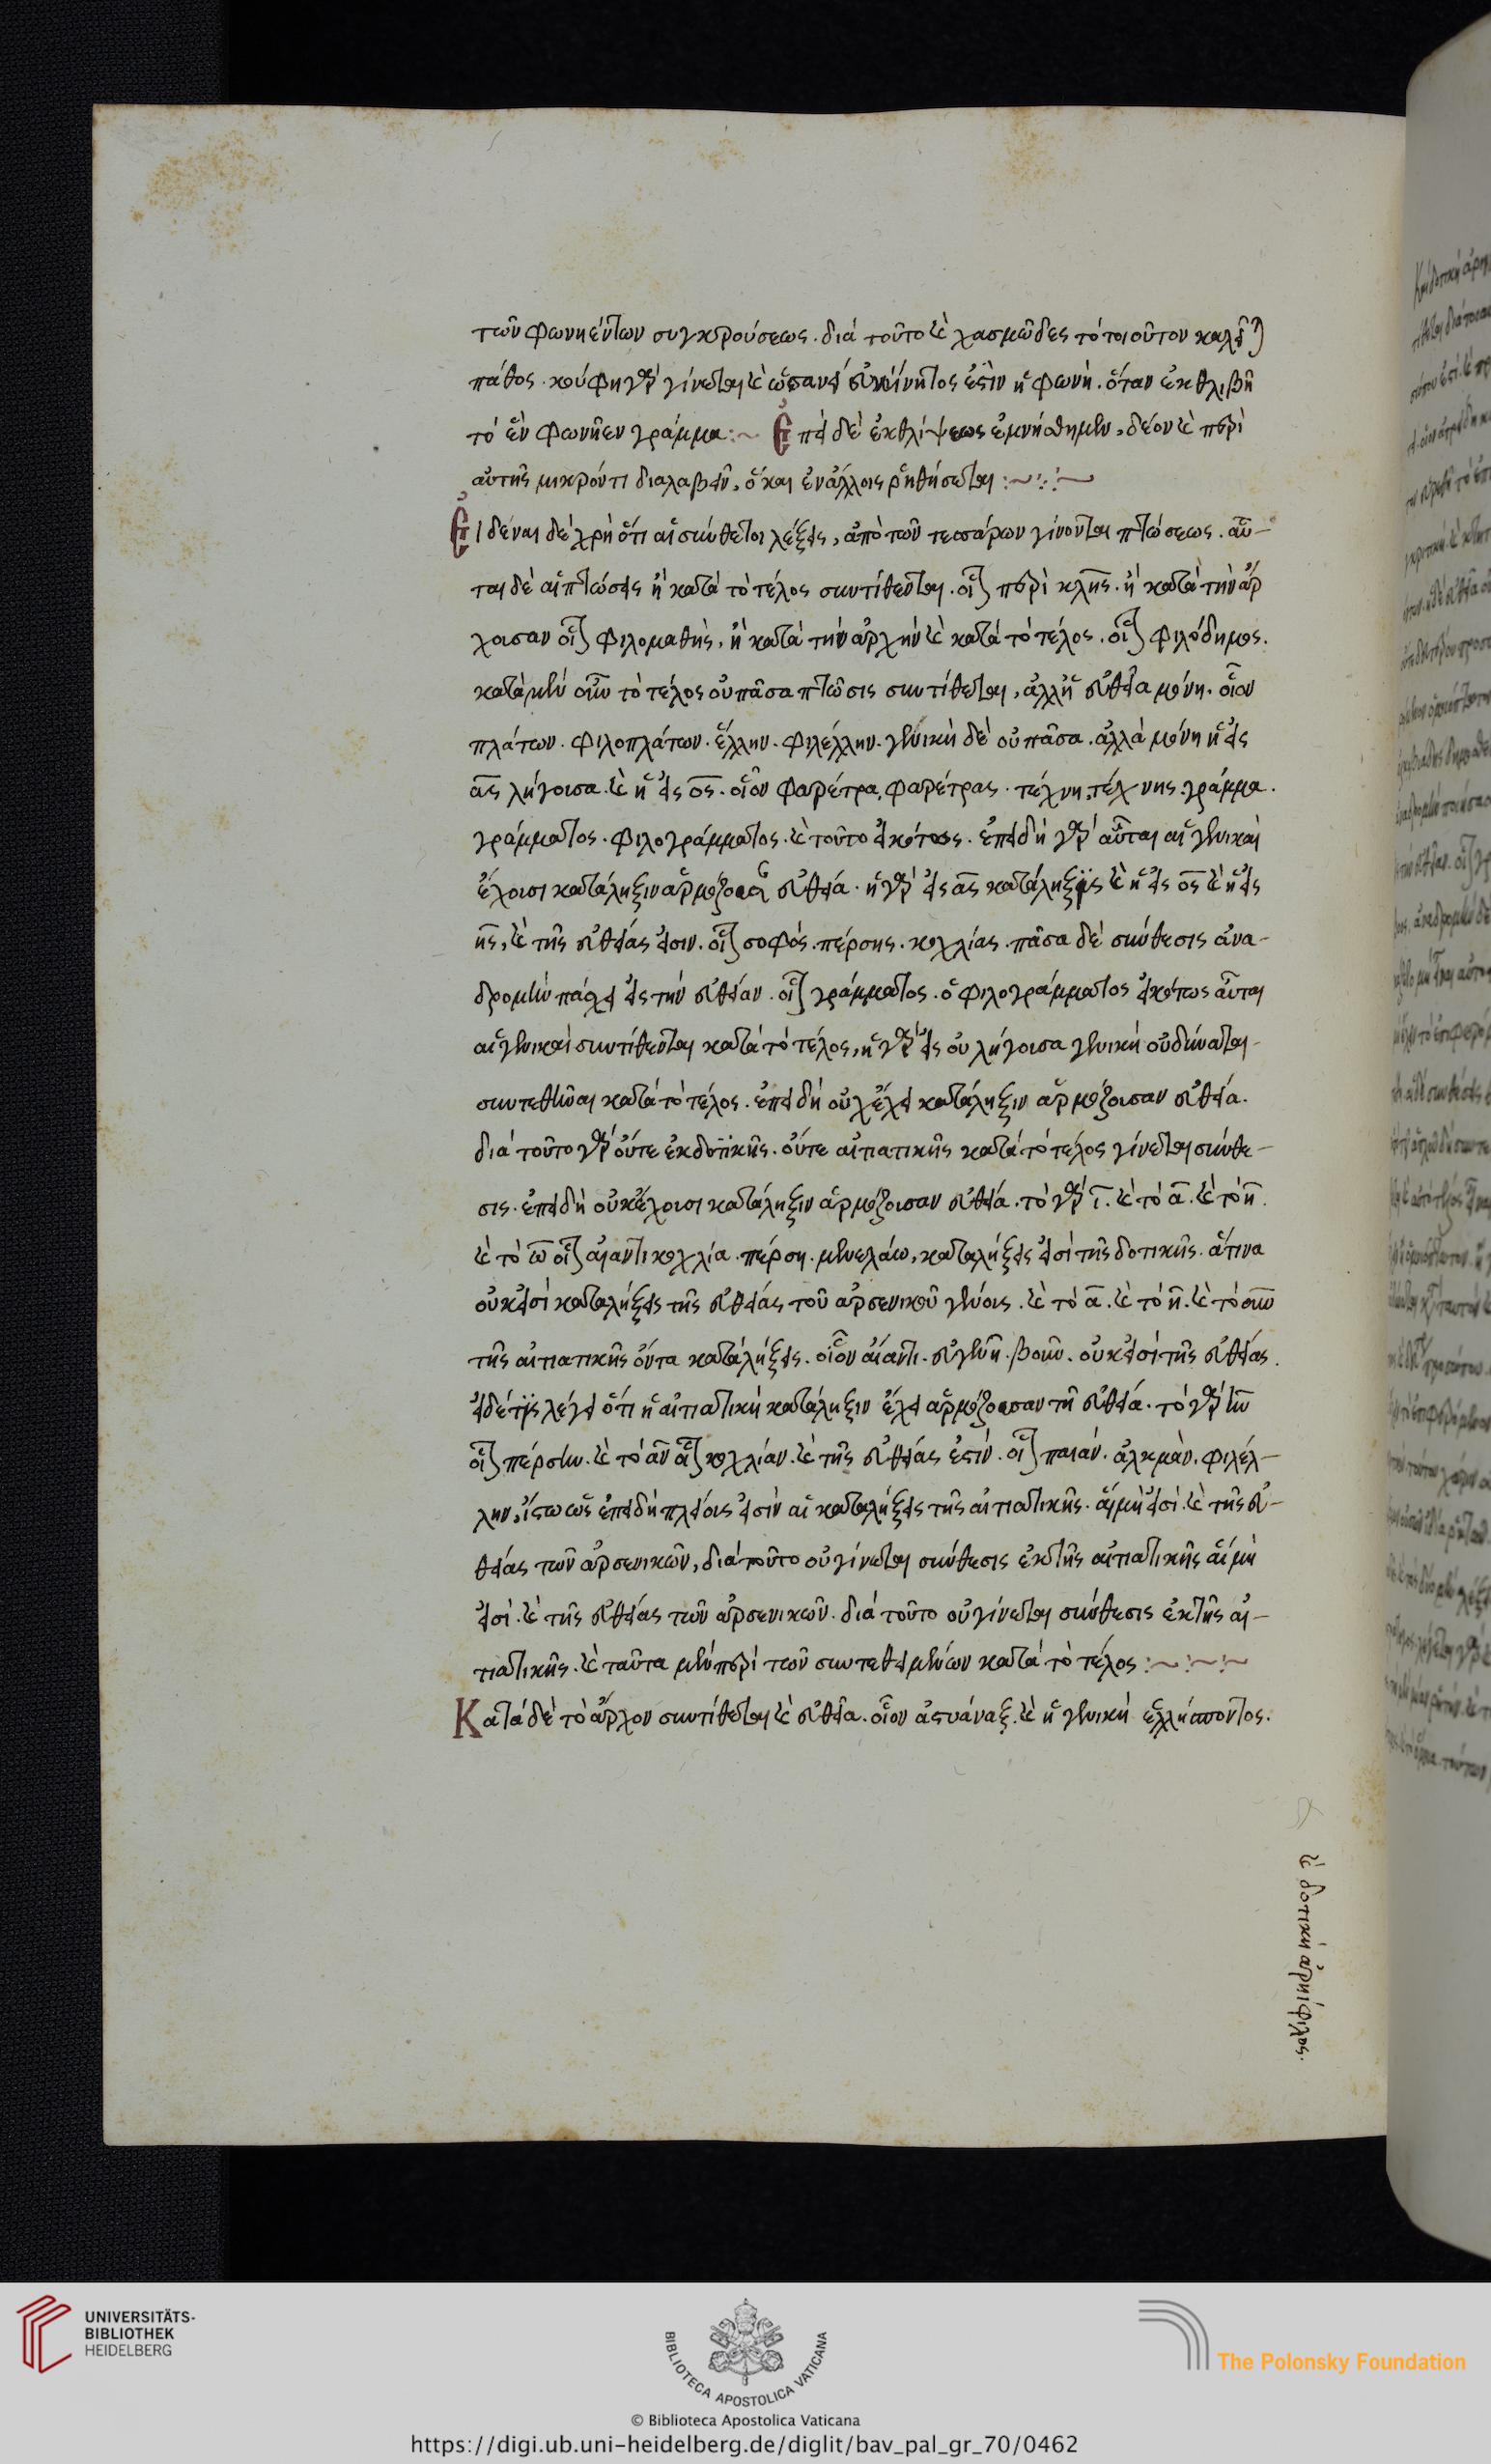 τῶν φωνηέντων συγκρούσεως. διὰ τοῦτο καὶ χασμῶδες τὸ τοιοῦτον καλεῖται
πάθος. κούφη γὰρ γίνεται καὶ ὡσανεὶ εὐκίνητος ἐστὶν ἡ φωνὴ. ὅταν ἐκθλιβῆ
τὸ ἓν φωνῆεν γράμμα:~ Ἐπεὶ δὲ ἐκθλίψεως ἐμνήσθημεν, δέον καὶ περὶ
αὐτῆς μικρόν τι διαλαβεῖν, ὃ καὶ ἐν ἄλλοις ῥηθήσεται :~:~
Εἰδέναι δὲ χρὴ ὅτι αἱ σύνθετοι λέξεις, ἀπὸ τῶν τεσσάρων γίνονται πτώσεως. αὗ-
ται δὲ αἱ πτώσεις ἢ κατὰ τὸ τέλος συντίθενται. οἷον περὶ κλῆς. ἢ κατὰ τὴν ἄρ
χουσαν οἷον φιλομαθὴς, ἢ κατὰ τὴν ἀρχὴν καὶ κατὰ τὸ τέλος. οἷον φιλόδημος.
κατὰ μὲν οὖν τὸ τέλος οὐ πᾶσα πτῶσις συντίθεται, ἀλλ' ἡ εὐθεῖα μόνη. οἷον
πλάτων. φιλοπλάτων. ἕλλην. φιλέλλην. γενικὴ δὲ οὐ πᾶσα. ἀλλὰ μόνη ἡ εἰς
ας λήγουσα. καὶ ἡ εἰς ος. οἷον φαρέτρα, φαρέτρας. τέχνη, τέχνης. γράμμα.
γράμματος. φιλογράμματος. καὶ τοῦτο εἰκότως. ἐπειδὴ γὰρ αὗται αἱ γενικαὶ
ἔχουσι κατάληξιν ἁρμόζουσαν εὐθεία. ἡ γὰρ εἰς ας κατάληξις καὶ ἡ εἰς ος καὶ ἡ εἰς
ης, καὶ τῆς εὐθείας εἰσιν. οἷον σοφός. πέρσης. κοχλίας. πᾶσα δὲ σύνθεσις ἀνα-
δρομὴν πάσχει εἰς τὴν εὐθεῖαν. οἷον γράμματος. ὁ φιλογράμματος εἰκότως αὗται
αἱ γενικαὶ συντίθενται κατὰ τὸ τέλος, ἡ γὰρ εἰς ου λήγουσα γενικὴ οὐ δύναται
συντεθῆναι κατὰ τὸ τέλος. ἐπειδὴ οὐχ ἔχει κατάληξιν ἁρμόζουσαν εὐθεία.
διὰ τοῦτο γὰρ οὔτε ἐκ δοτϊκῆς. οὔτε αἰτιατικῆς κατὰ τὸ τέλος γίνεται σύνθε-
σις. ἐπειδὴ οὐκ ἔχουσι κατάληξιν ἁρμόζουσαν εὐθεία. τὸ γὰρ ι. καὶ τὸ α. καὶ τὸ η.
καὶ τὸ ω οἷον αἴαντι κοχλία. πέρση. μενελάω, καταλήξεις εἰσὶ τῆς δοτικῆς. ἅτινα
οὐκ εἰσὶ καταλήξεις τῆς εὐθείας τοῦ ἀρσενικοῦ γένους. καὶ τὸ α. καὶ τὸ η. καὶ τὸ ουν
τῆς αἰτιατικῆς ὄντα κατάληξεις. οἷον αἴαντι. εὐγενῆ. βοῦν. οὐκ εἰσὶ τῆς εὐθείας.
εἰ δέ τις λέγει ὅτι ἡ αἰτιατικὴ κατάληξιν ἔχει ἁρμόζουσαν τῆ εὐθεία. τὸ γὰρ ην
οἷον πέρσην. καὶ τὸ αν οἷον κοχλίαν. καὶ τῆς εὐθείας ἐστίν. οἷον παιάν. ἀλκμὰν. φιλέλ-
λην, ἴστω ὡς ἐπειδὴ πλείους εἰσὶν αἱ καταλήξεις τῆς αἰτιατικῆς. αἳ μὴ εἰσὶ. καὶ τῆς εὐ-
θείας τῶν ἀρσενικῶν, διὰ τοῦτο οὐ γίνεται σύνθεσις ἐκ τῆς αἰτιατικῆς αἳ μὴ
εἰσὶ. καὶ τῆς εὐθείας τῶν ἀρσενικῶν. διὰ τοῦτο οὐ γίνεται σύνθεσις ἐκ τῆς αἰ-
τιατικῆς. καὶ ταῦτα μὲν περὶ τῶν συντεθειμένων κατὰ τὸ τέλος :~:~:~
Κατὰ δὲ τὸ ἄρχον συντίθεται καὶ εὐθεῖα. οἷον ἀστυάναξ. καὶ ἡ γενικὴ ἑλλήσποντος.
καὶ δοτικὴ ἀρηίφιλος.
UNIVERSITÄTS-
BIBLIOTHEK
HEIDELBERG
BIBLIOTECA APOSTOLICA VATICANA
The Polonsky Foundation
© Biblioteca Apostolica Vaticana
https://digi.ub.uni-heidelberg.de/diglit/bav_pal_gr_70/0462